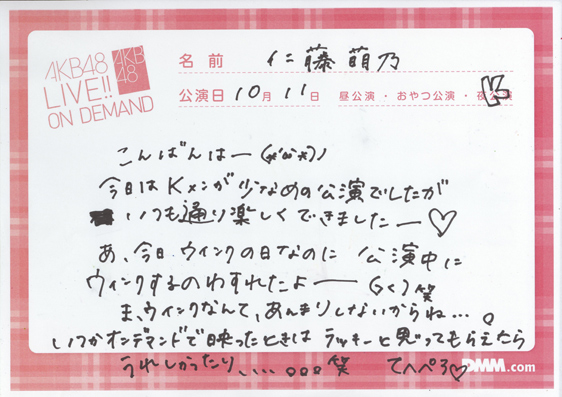 AKB48
LIVE!!
ON DEMAND
AKB
48
名前 仁藤萌乃
公演日 10月11日 昼公演・おやつ公演・夜公演
K
こんばんはー(*'ω'*)ノ
今日はKメンが少なめの公演でしたが
いつも通り楽しくできましたー♡
あ、今日ウインクの日なのに 公演中に
ウインクするのわすれたよー (>く) 笑
ま、ウインクなんて、あんまりしないからね…。
いつかオンデマンドで映ったときは ラッキーと思ってもらえたら
うれしかったり、、、。。。笑 てへぺろ♡
DMM.com